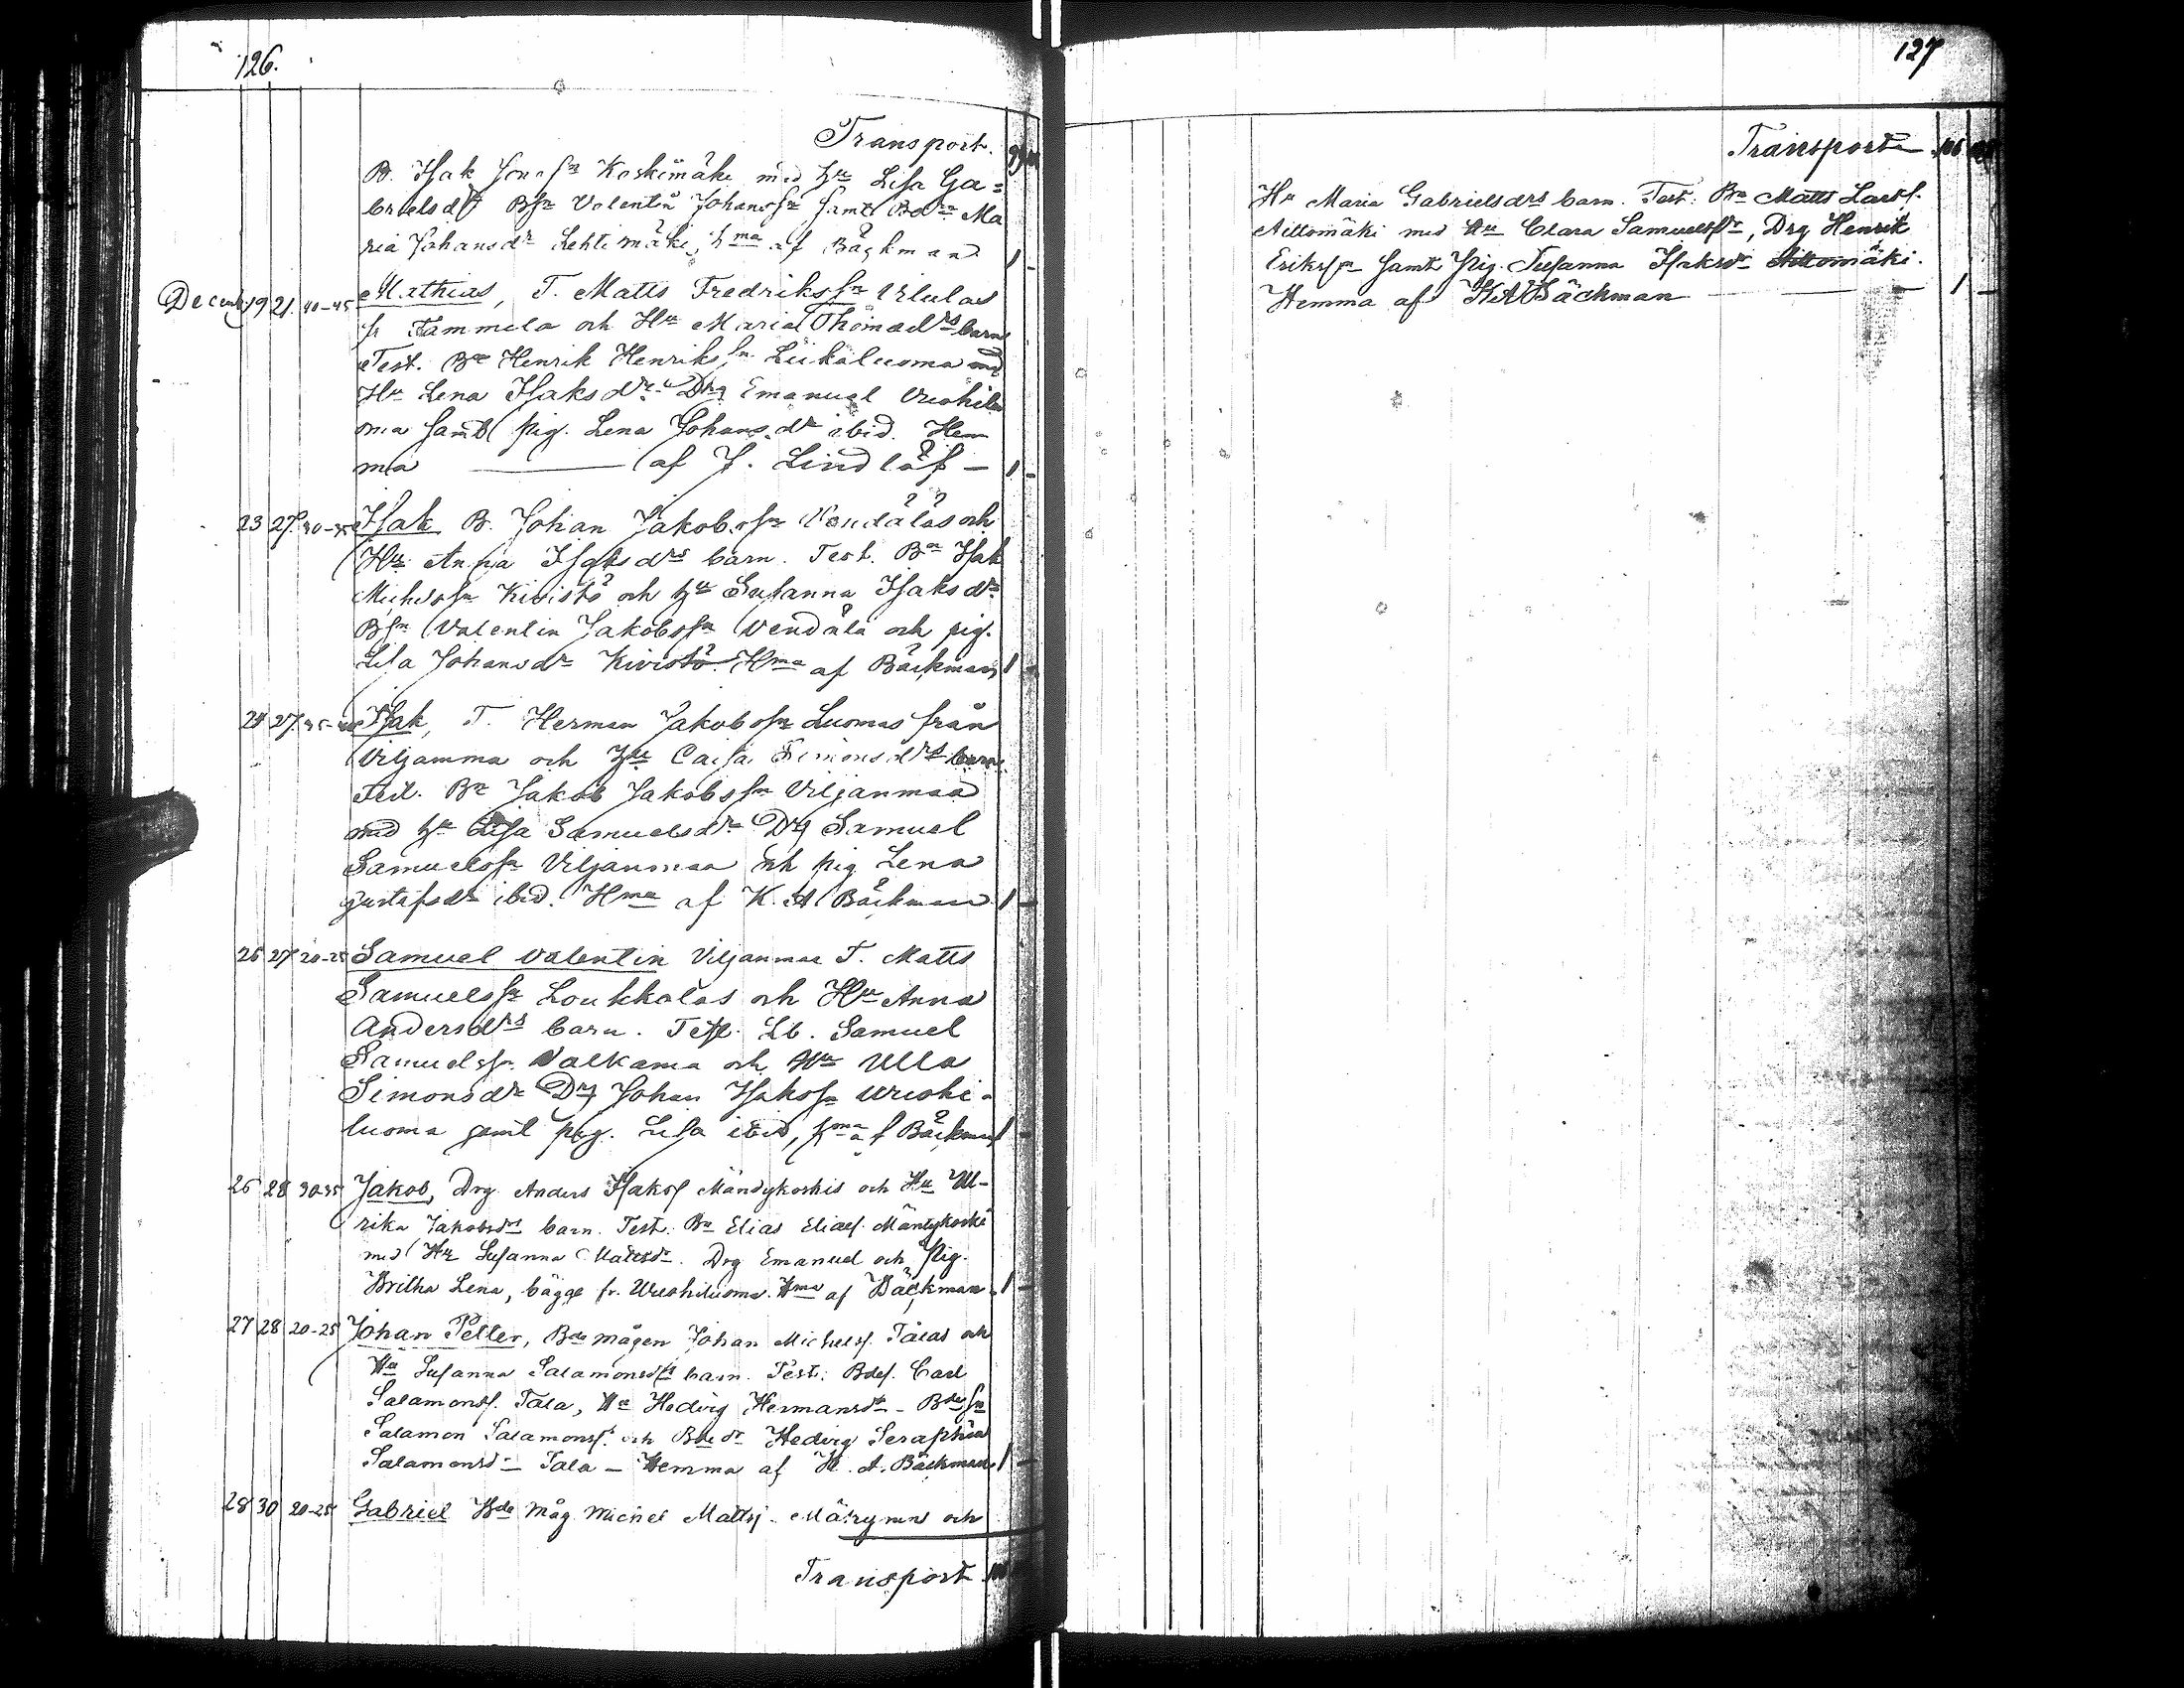 126.
Transport.
B. Isak Jonasn Koskimäki med hu Lisa Ga=
brielsdr Bsn Valentin Johansn samt Bdr Ma
ria Johansdr Lehtimäki, hma af Bäckman 1 -
Decemb 19 21. 40-45 Mathias, T. Matts Fredrikssn
fr Tammela och Hu Maria Thomædrs barn
Test. Bn Henrik Henrikssn Liikaluoma med
Hu Lena Isaksdr Drg Emanuel
oma samt pig. Lena Johansdr ibid. Hem
ma af J. Lindlöf - 1 -
23 27. 30-35 Isak B. Johan Jakobssn Vendälas och
Hu Anna Isaksdrs barn. Test. Bn Isak
Michelssn Kivistö och hu Susanna Isaksdr
Bsn Valentin Jakobssn Vendälä och pig.
Lisa Johansdr Kivistö. Hma af Bäckman 1 -
24 27. Isak, T. Herman Jakobssn Luomas från
Viljamma och hu Caisa Simonsdrs barn.
Test. Bn Jakob Jakobssn Viljanmaa
med hu Lisa Samuelsdr Drg Samuel
Samuelssn Viljanmaa och pig Lena
Gustafsdr ibid. Hma af K. A Bäckman 1 -
25 27 20-25 Samuel Valentin Viljanmaa T. Matts
Samuelssn Loukkolas och Hu Anna
Andersdrs barn. Test. Lb. Samuel
Samuelssn Valkama och Hu Ulla
Simonsdr Drg Johan Isakssn
luoma samt pig. Lisa ibid, hma af Bäckman 1 -
26 28 30-35 Jakob, Drg Anders Isakss Mändykoskis och Hu Ul-
rika Jakobsdrs barn. Test. Bn Elias Eliass. Mäntykoski
med Hu Susanna Mattsdr. Drg Emanuel och Pig.
Britha Lena, bägge fr. Hma af Bäckman. 1 -
27 28 20-25 Johan Petter, Bde mågen Johan Michelss. Talas och
Hu Susanna Salamonsdrs barn. Test: Bdes. Carl
Salamonss. Tala, Hu Hedvig Hermansdr - Bdesn
Salamon Salamonss. och Bdedr Hedvig Seraphia
Salamonsdr Tala - Hemma af K. A. Bäckman. 1 -
28 30 20-25 Gabriel Bde Måg Michel Mattss. och
Transport
127
Transport 106
Hu Maria Gabrielsdrs barn. Test: Bn Matts Larss.
Aittomäki med Hu Clara Samuelsdr, Drg Henrik
Erikssn samt Pig. Susanna Isaksdr Aittomäki.
Hemma af KA Bäckman 1 -